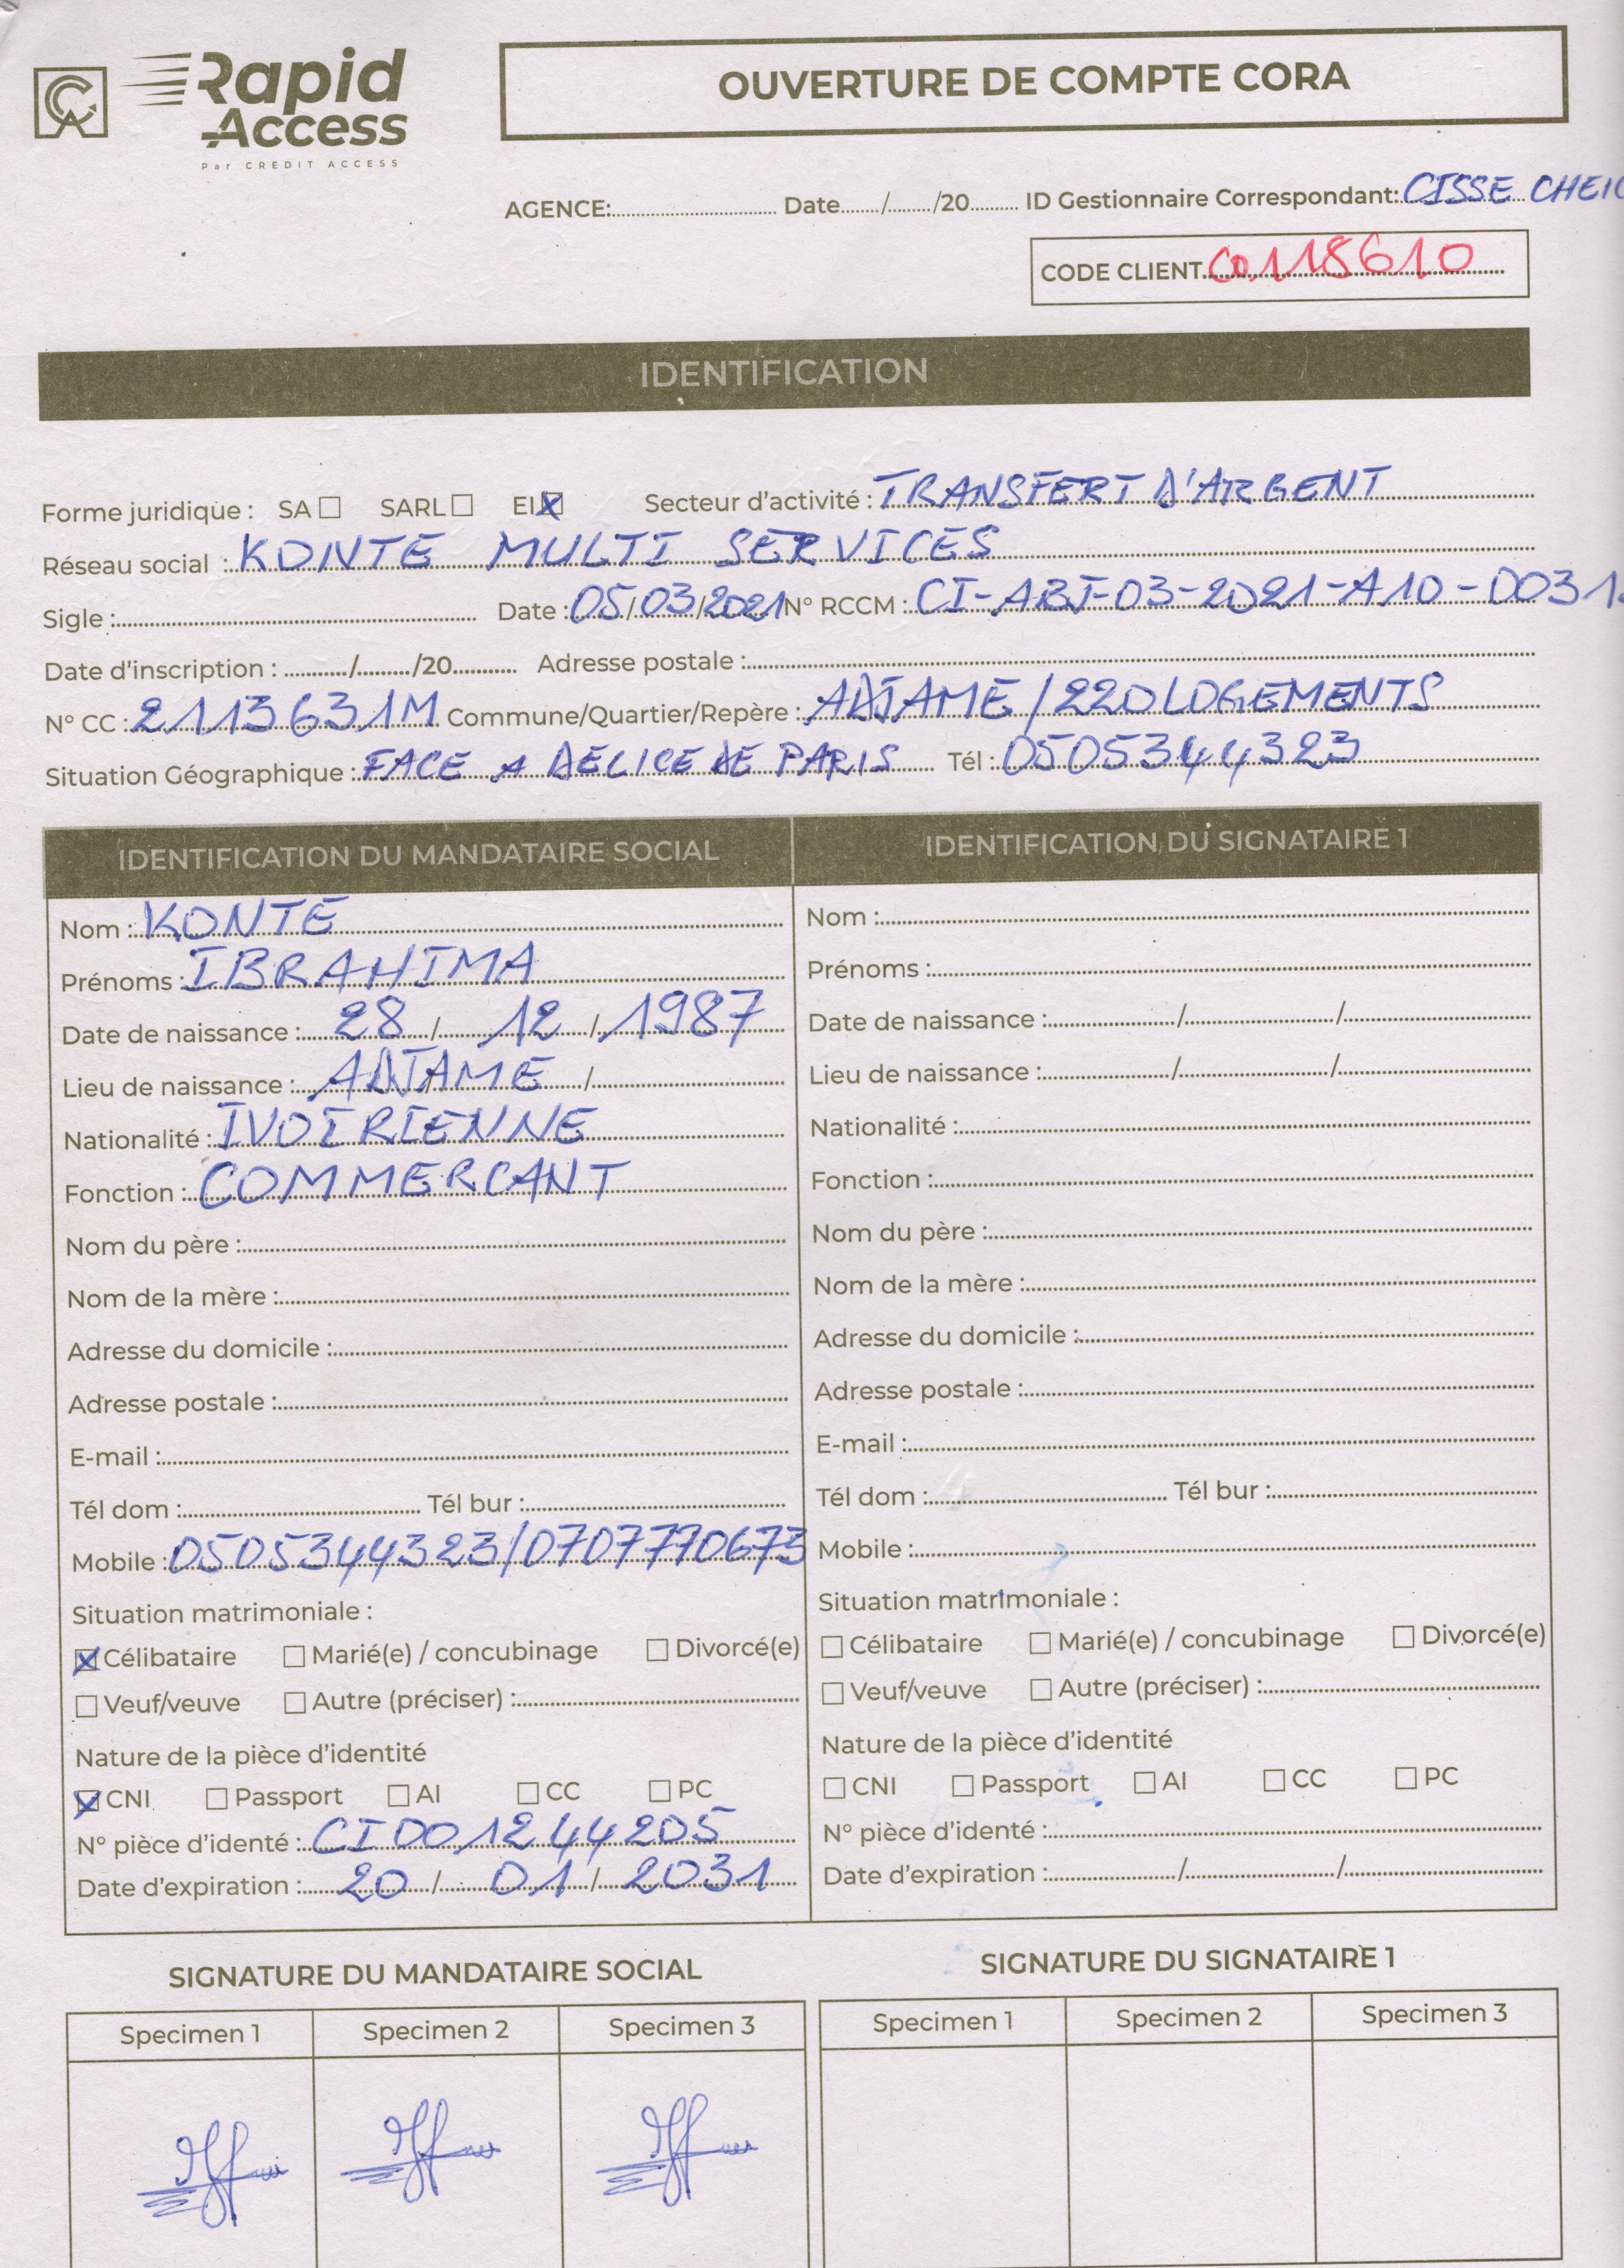 Rapid
Access
Par CREDIT ACCESS
OUVERTURE DE COMPTE CORA
AGENCE:.......... Date....../....../20...... ID Gestionnaire Correspondant: CISSE CHEIC
CODE CLIENT C0118610
IDENTIFICATION
Forme juridique : SA ☐ SARL ☐ EI ☒ Secteur d'activité : TRANSFERT D'ARGENT
Réseau social : KONTE MULTI SERVICES
Sigle :.......... Date : 05/03/2021 N° RCCM : CI-ABJ-03-2021-A10-0031
Date d'inscription : ....../....../20...... Adresse postale :..........
N° CC : 2113631M Commune/Quartier/Repère : ADJAME / 220 LOGEMENTS
Situation Géographique : FACE A DELICE DE PARIS Tél : 0505344323
IDENTIFICATION DU MANDATAIRE SOCIAL
Nom : KONTE
Prénoms : IBRAHIMA
Date de naissance : 28 / 12 / 1987
Lieu de naissance : ADJAME /
Nationalité : IVOIRIENNE
Fonction : COMMERCANT
Nom du père :..........
Nom de la mère :..........
Adresse du domicile :..........
Adresse postale :..........
E-mail :..........
Tél dom :.......... Tél bur :..........
Mobile : 0505344323/0707770673
Situation matrimoniale :
☒ Célibataire ☐ Marié(e) / concubinage ☐ Divorcé(e)
☐ Veuf/veuve ☐ Autre (préciser) :..........
Nature de la pièce d'identité
☒ CNI ☐ Passport ☐ AI ☐ CC ☐ PC
N° pièce d'identé : CI001244205
Date d'expiration : 20 / 01 / 2031
IDENTIFICATION DU SIGNATAIRE 1
Nom :..........
Prénoms :..........
Date de naissance :........../........../..........
Lieu de naissance :........../........../..........
Nationalité :..........
Fonction :..........
Nom du père :..........
Nom de la mère :..........
Adresse du domicile :..........
Adresse postale :..........
E-mail :..........
Tél dom :.......... Tél bur :..........
Mobile :..........
Situation matrimoniale :
☐ Célibataire ☐ Marié(e) / concubinage ☐ Divorcé(e)
☐ Veuf/veuve ☐ Autre (préciser) :..........
Nature de la pièce d'identité
☐ CNI ☐ Passport ☐ AI ☐ CC ☐ PC
N° pièce d'identé :..........
Date d'expiration :........../........../..........
SIGNATURE DU MANDATAIRE SOCIAL
Specimen 1 Specimen 2 Specimen 3
SIGNATURE DU SIGNATAIRE 1
Specimen 1 Specimen 2 Specimen 3